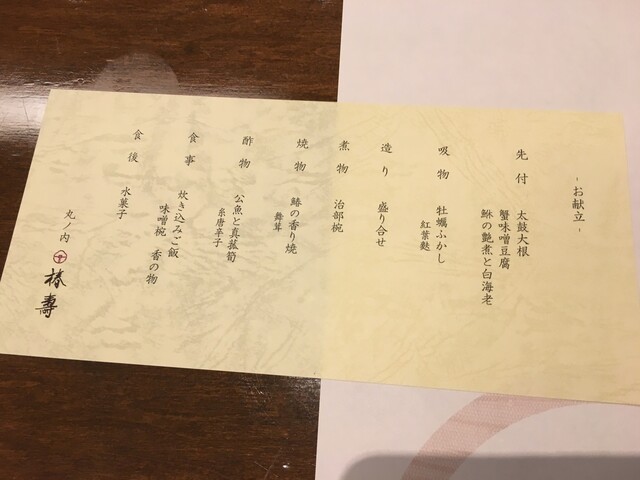 -お献立-
先付 太鼓大根
蟹味噌豆腐
鮴の艶煮と白海老
吸物 牡蠣ふかし
紅葉麩
造り 盛り合せ
煮物 治部椀
焼物 鰆の香り焼
舞茸
酢物 公魚と真菰筍
糸唐辛子
食事 炊き込みご飯
味噌椀 香の物
食後 水菓子
丸ノ内
椿壽